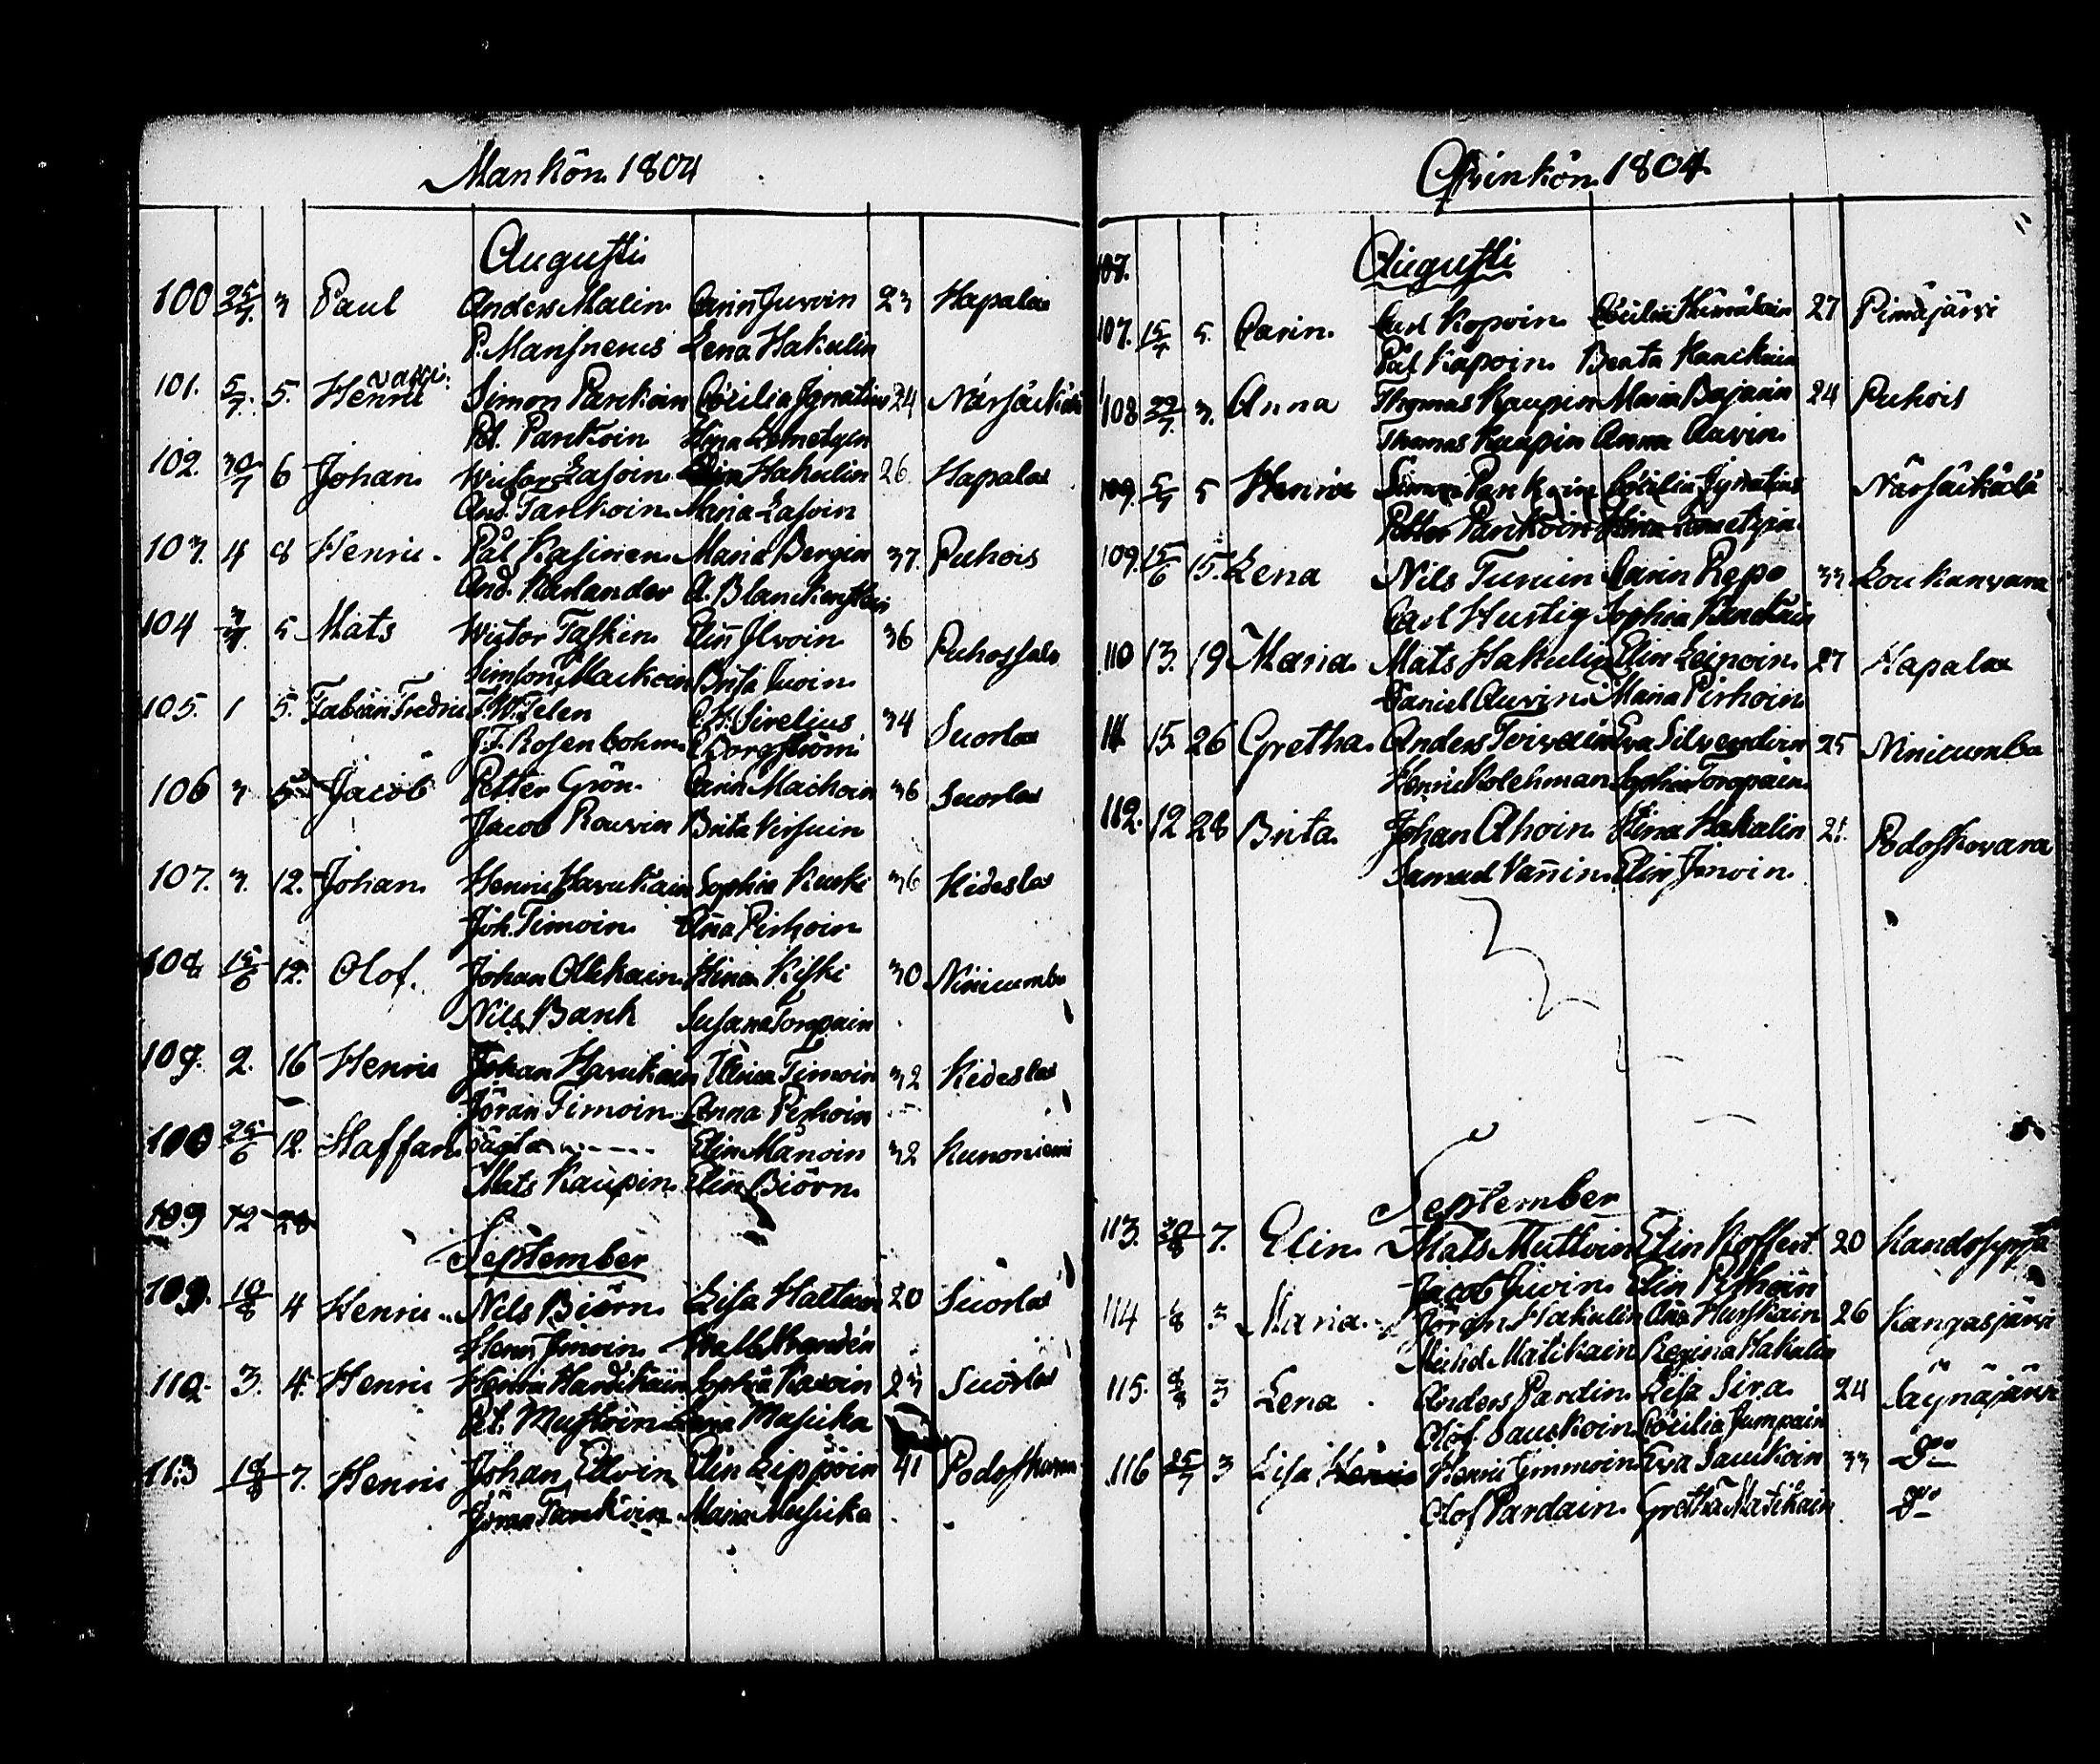 Mankön 1804
Augusti
100 25/7 3 Paul Anders Malin Carin Juvoin 23 Hapalax
P. Mansnerus Lena Hakulin
101. 5/7. 5. Henric Simon Pankoin Cecilia Ignatius 24 Närsäkkälä
Pet. Pankoin Stina
102. 30/7 6 Johan Lasoin Hakulin 26. Hapalax
And. Tankoin Maria Lasoin
103. 4 8 Henric Pål Kasinen Maria Bergin 37. Puhois
And. Karlander A. Blanckenstein
104 5 Mats Wictor Taskin Elin Ilvoin 36 Puhossalo
Simson Maikoin Brita Juvoin
105. 1 5. Fabian Fredric F.W. Telen C.H. Sirelius 34 Suorlax
J.F. Rosenbohm C Borgström
106 3 Jacob Petter Grön Carin Maikoin 36 Suorlax
Jacob Rouvin Brita
107. 3. 12. Johan Henric Havukain Sophia Kurki 36 Kideslax
Joh. Timoin Ana Pirhoin
108 15/6 12. Olof. Johan Ollikain Stina Kiski 30 Niniicumbu
Nils Bank Susana Torpain
109. 2. 16 Henric Johan Havukain Stina Timoin 32 Kideslax
Jöran Timoin Anna Pirhoin
100 25/6 12. Staffan oägta Elin Mänoin 32 Kunoniemi
Mats Kaupin Elin Biörn
109 12 28
September
109. 10/8 4 Henric Nils Biörn Lisa Hattuin 20 Suorlax
Henr Imoin
110. 3. 4. Henric Henric Havukain Sophia 23 Suorlax
Pet. Mustoin Lena Musicka
113 7. Henric Johan Elvin Elin Lippoin 41 Podoskavara
Jöran Tankoin Maria Musicka
Qvinkön 1804
107.
Augusti
107. 15/7 5. Carin Carl Kopoin Cecilia Hämäläin 27 Pimäjärvi
Pål Kapoin Beata Kanikain
108 29/7. 3. Anna Thomas Kaupin Maria Bajarin 24 Puhois
Thomas Kaupin Anna Auvin
109. 5/7 5 Henric Simon Pankoin Cecilia Ignatius Närsäkkälä
Petter Pankoin Stina
109. 15/6 15. Lena Nils Turuin Carin Repo 33 Loukunvara
Carl Hustig Sophia
110 13. 19 Maria Mats Hakulin Elin Leinoin 27 Hapalax
Daniel Auvin Maria Pirhoin
111 15. 26 Gretha Anders Toivain Eva Silvendoin 25 Niniicumbu
Henric Kolehman Sophia Toropain
112. 12 28 Brita Johan Ahoin Stina Hakulin 21. Podoskavara
Samuel Vänin Elin Imoin
September
113. 30/8 7. Elin Mats Muttoin Elin Koffert 20
Jacob Juvin Elin Pirhoin
114 3 Maria Jöran Hakulin Ana Hurskain 26 Kangasjärvi
Michel Matikain Regina Hakulin
115. 3 Lena Anders Pardin Lisa Sira 24 Säynäjärvi
Olof Sauckoin Cecilia Jumpain
116 25/7 3 Lisa Henric Henric Immoin Eva Saukoin 33 Do
Olof Pardain Gretha Matikain Do